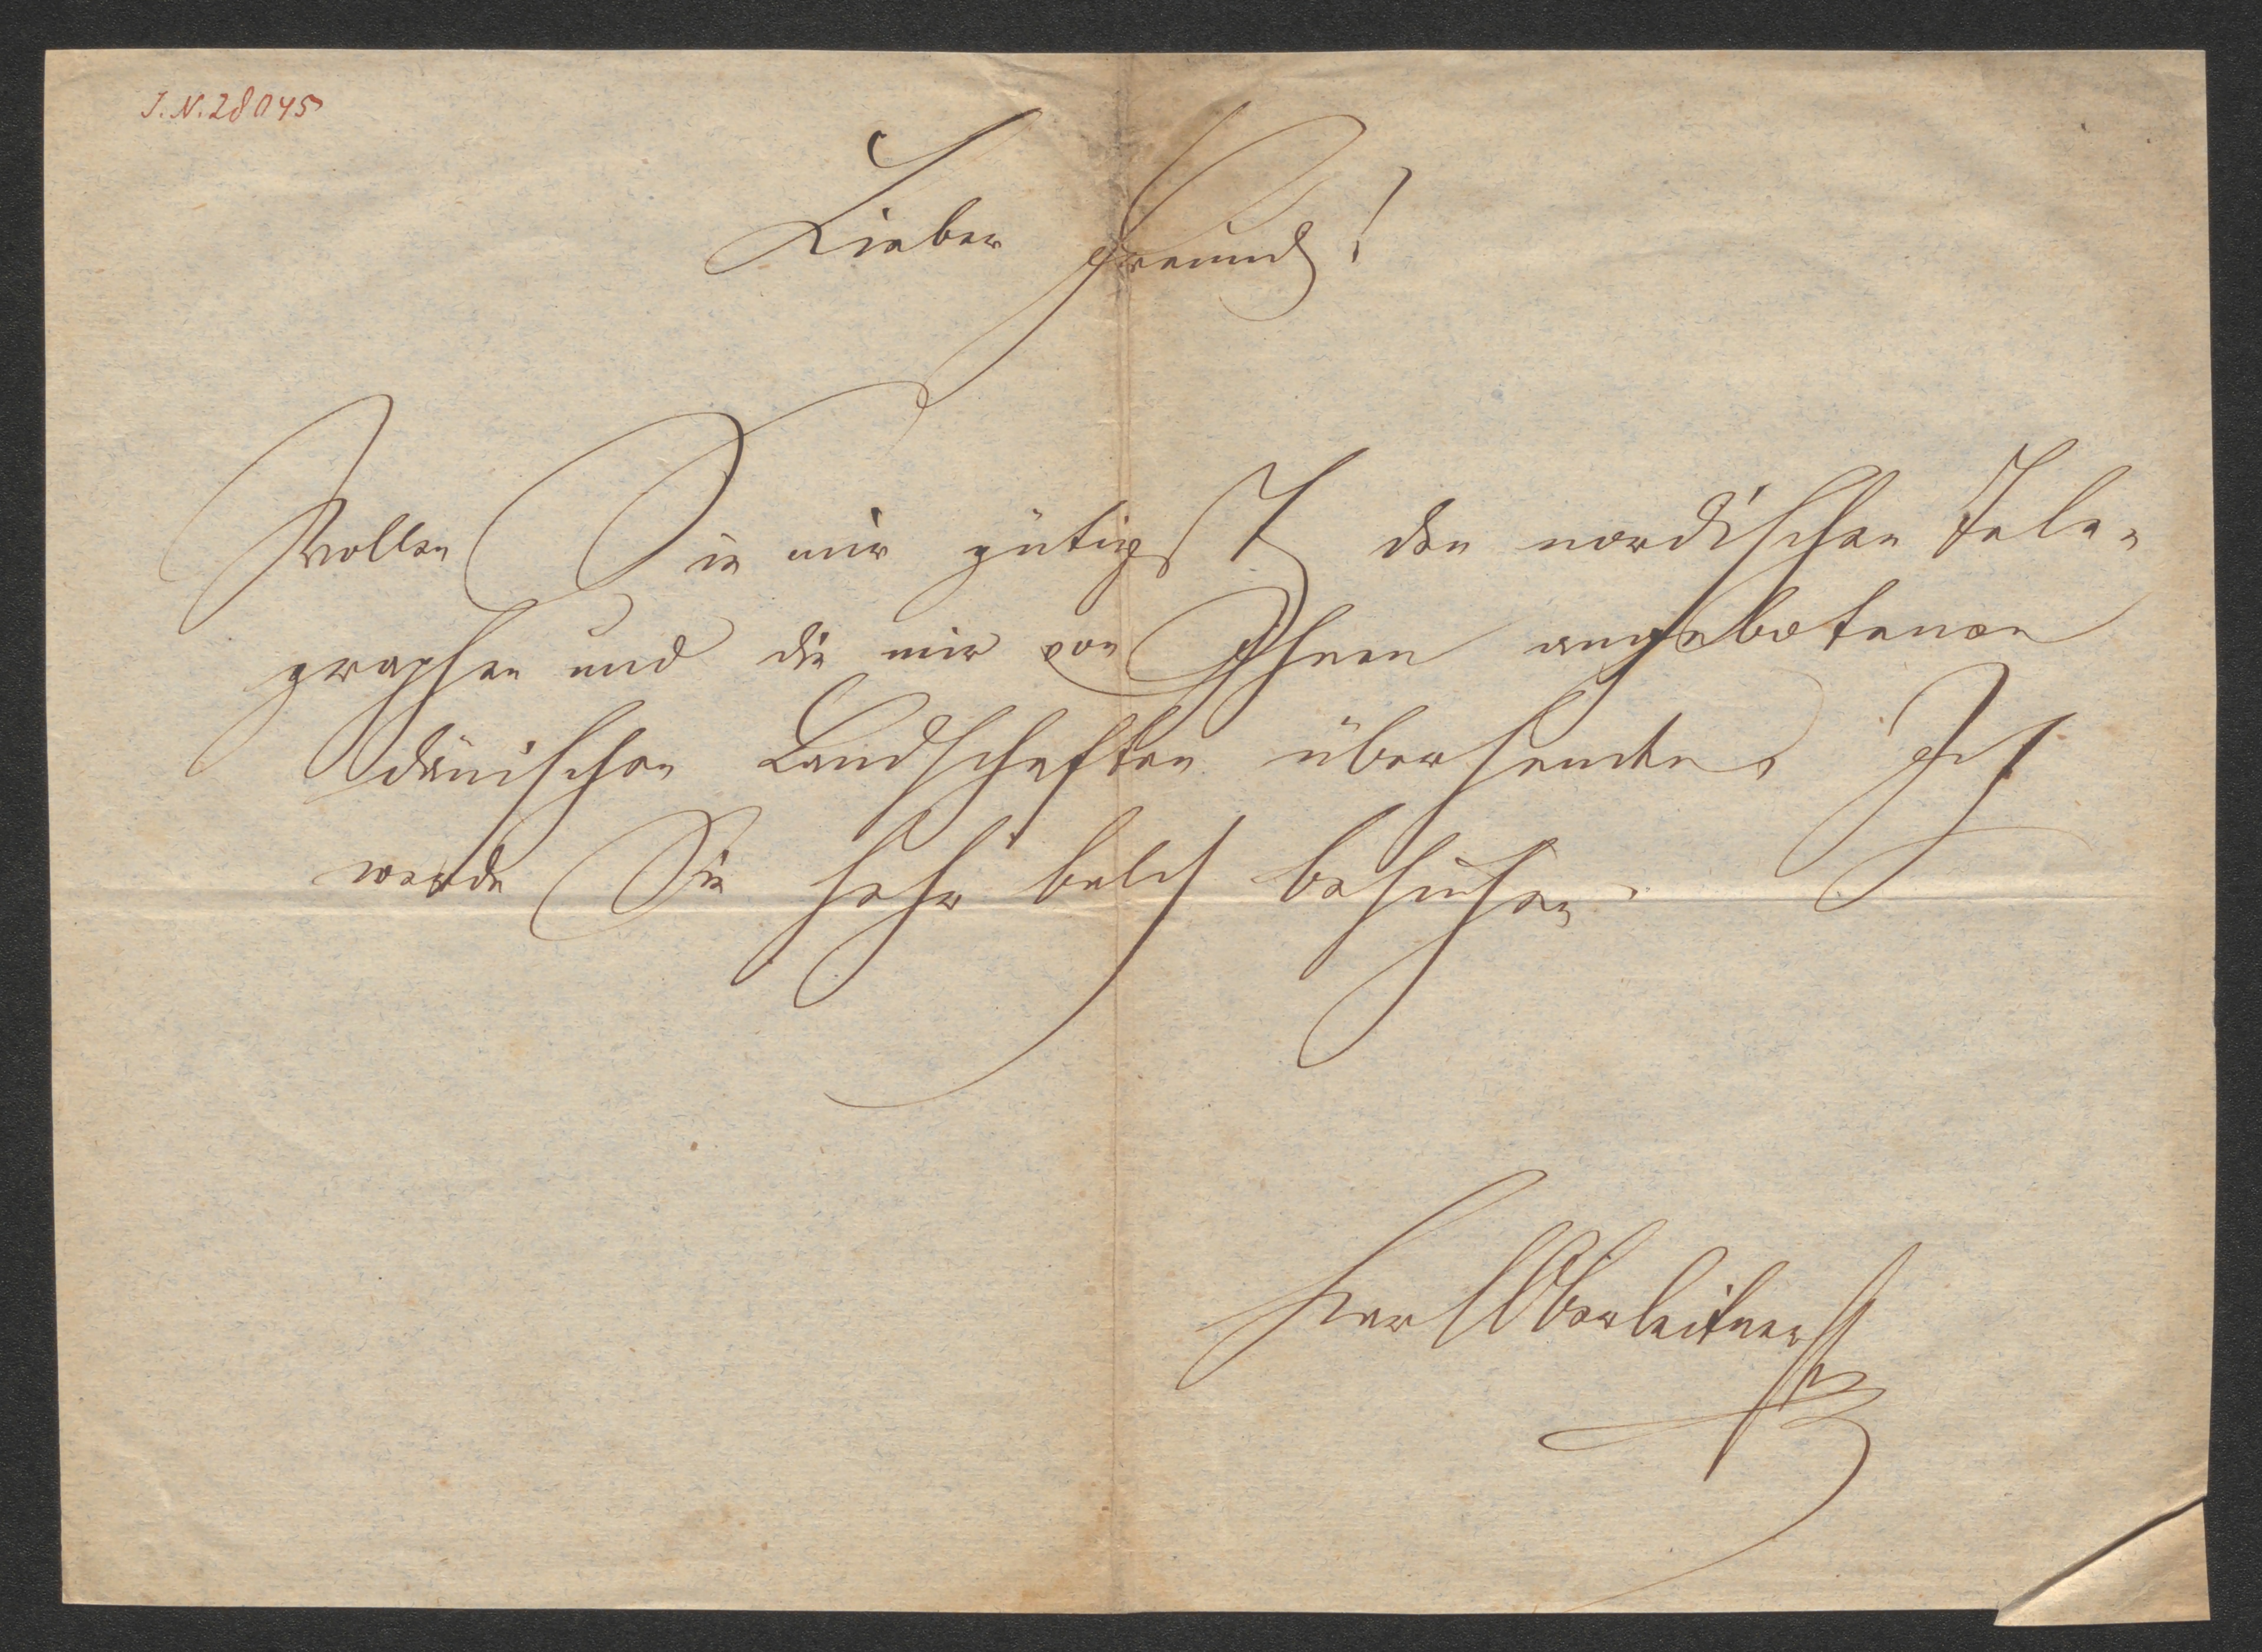 J. N. 28045
Lieber Freund!
Wollen Sie mir gütigst den nordischen Tele-
graphen und die mir von Ihnen angebotenen
dänischen Landschaften übersenden. Ich
werde Sie sehr bald besuchen.
Karl Oberleitner